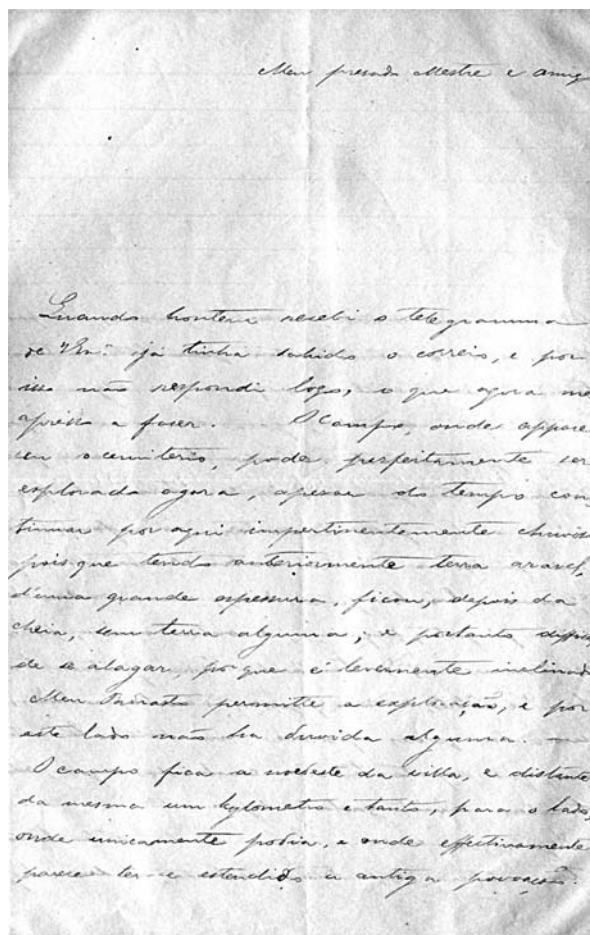 Meu presado Mestre e amig
Quando hontem recebi o telegramma
de V Ex.ª já tinha sahido o correio, e por
isso não respondi logo, o que agora me
apresso a faser. O campo, onde appare
ceu o cemiterio, pode perfeitamente ser
explorado agora, apesar do tempo con
tinuar por aqui impertinentemente chuvos
pois que tendo anteriormente terra aravel,
d'uma grande espessura, ficou, depois da
cheia, sem terra alguma, e portanto diffic
de se alagar, porque é levemente inclinado
Meu permitte a exploração, e por
este lado não ha duvida alguma. —
O campo fica a nordeste da villa, e distante
da mesma um kylometro e tanto, para o lado,
onde unicamente podia, e onde effectivamente
parece ter-se estendido a antiga povoação.